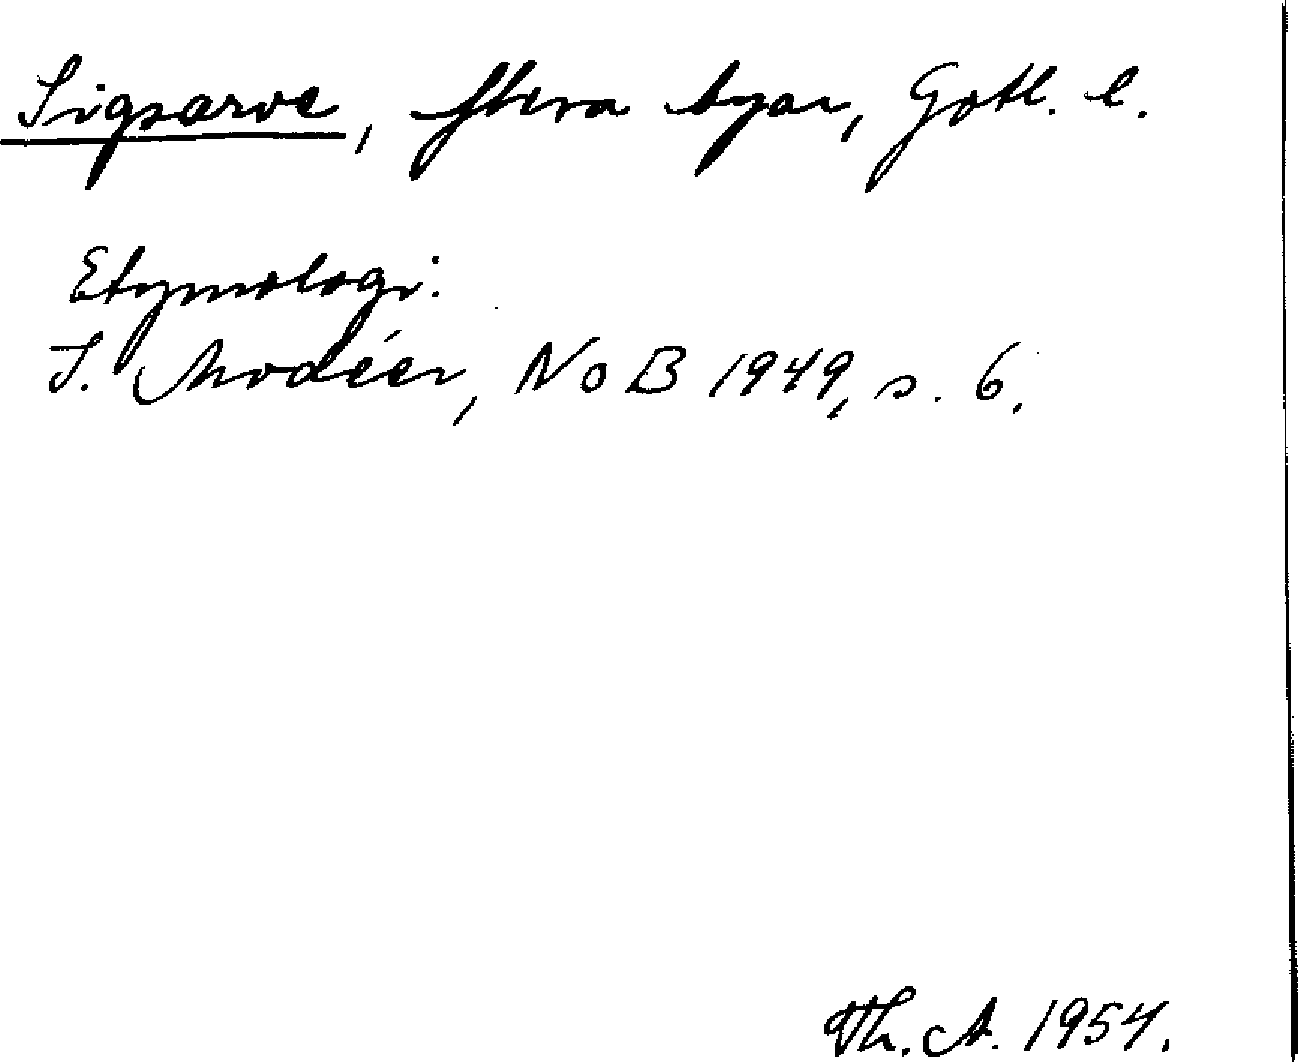 Sigsarve, flera byar, Gotl. l.
Etymologi:
I. Modéer, NoB 1949, s. 6.
Th. A. 1954.